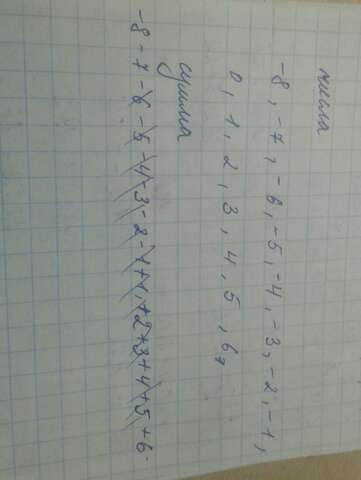 числа
-8, -7, -6, -5, -4, -3, -2, -1,
0, 1, 2, 3, 4, 5, 6,
сумма
-8-7-6-5-4-3-2-1+1+2+3+4+5+6